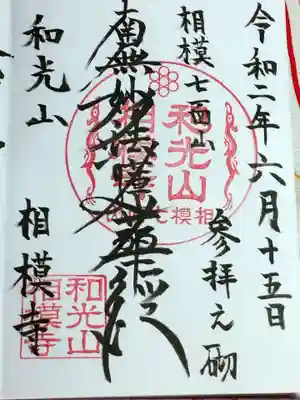 令和二年六月十五日
参拝之砌
相模七面山
南無妙法蓮華経
和光山
相模寺
和光山
相模寺
和光山
相模寺